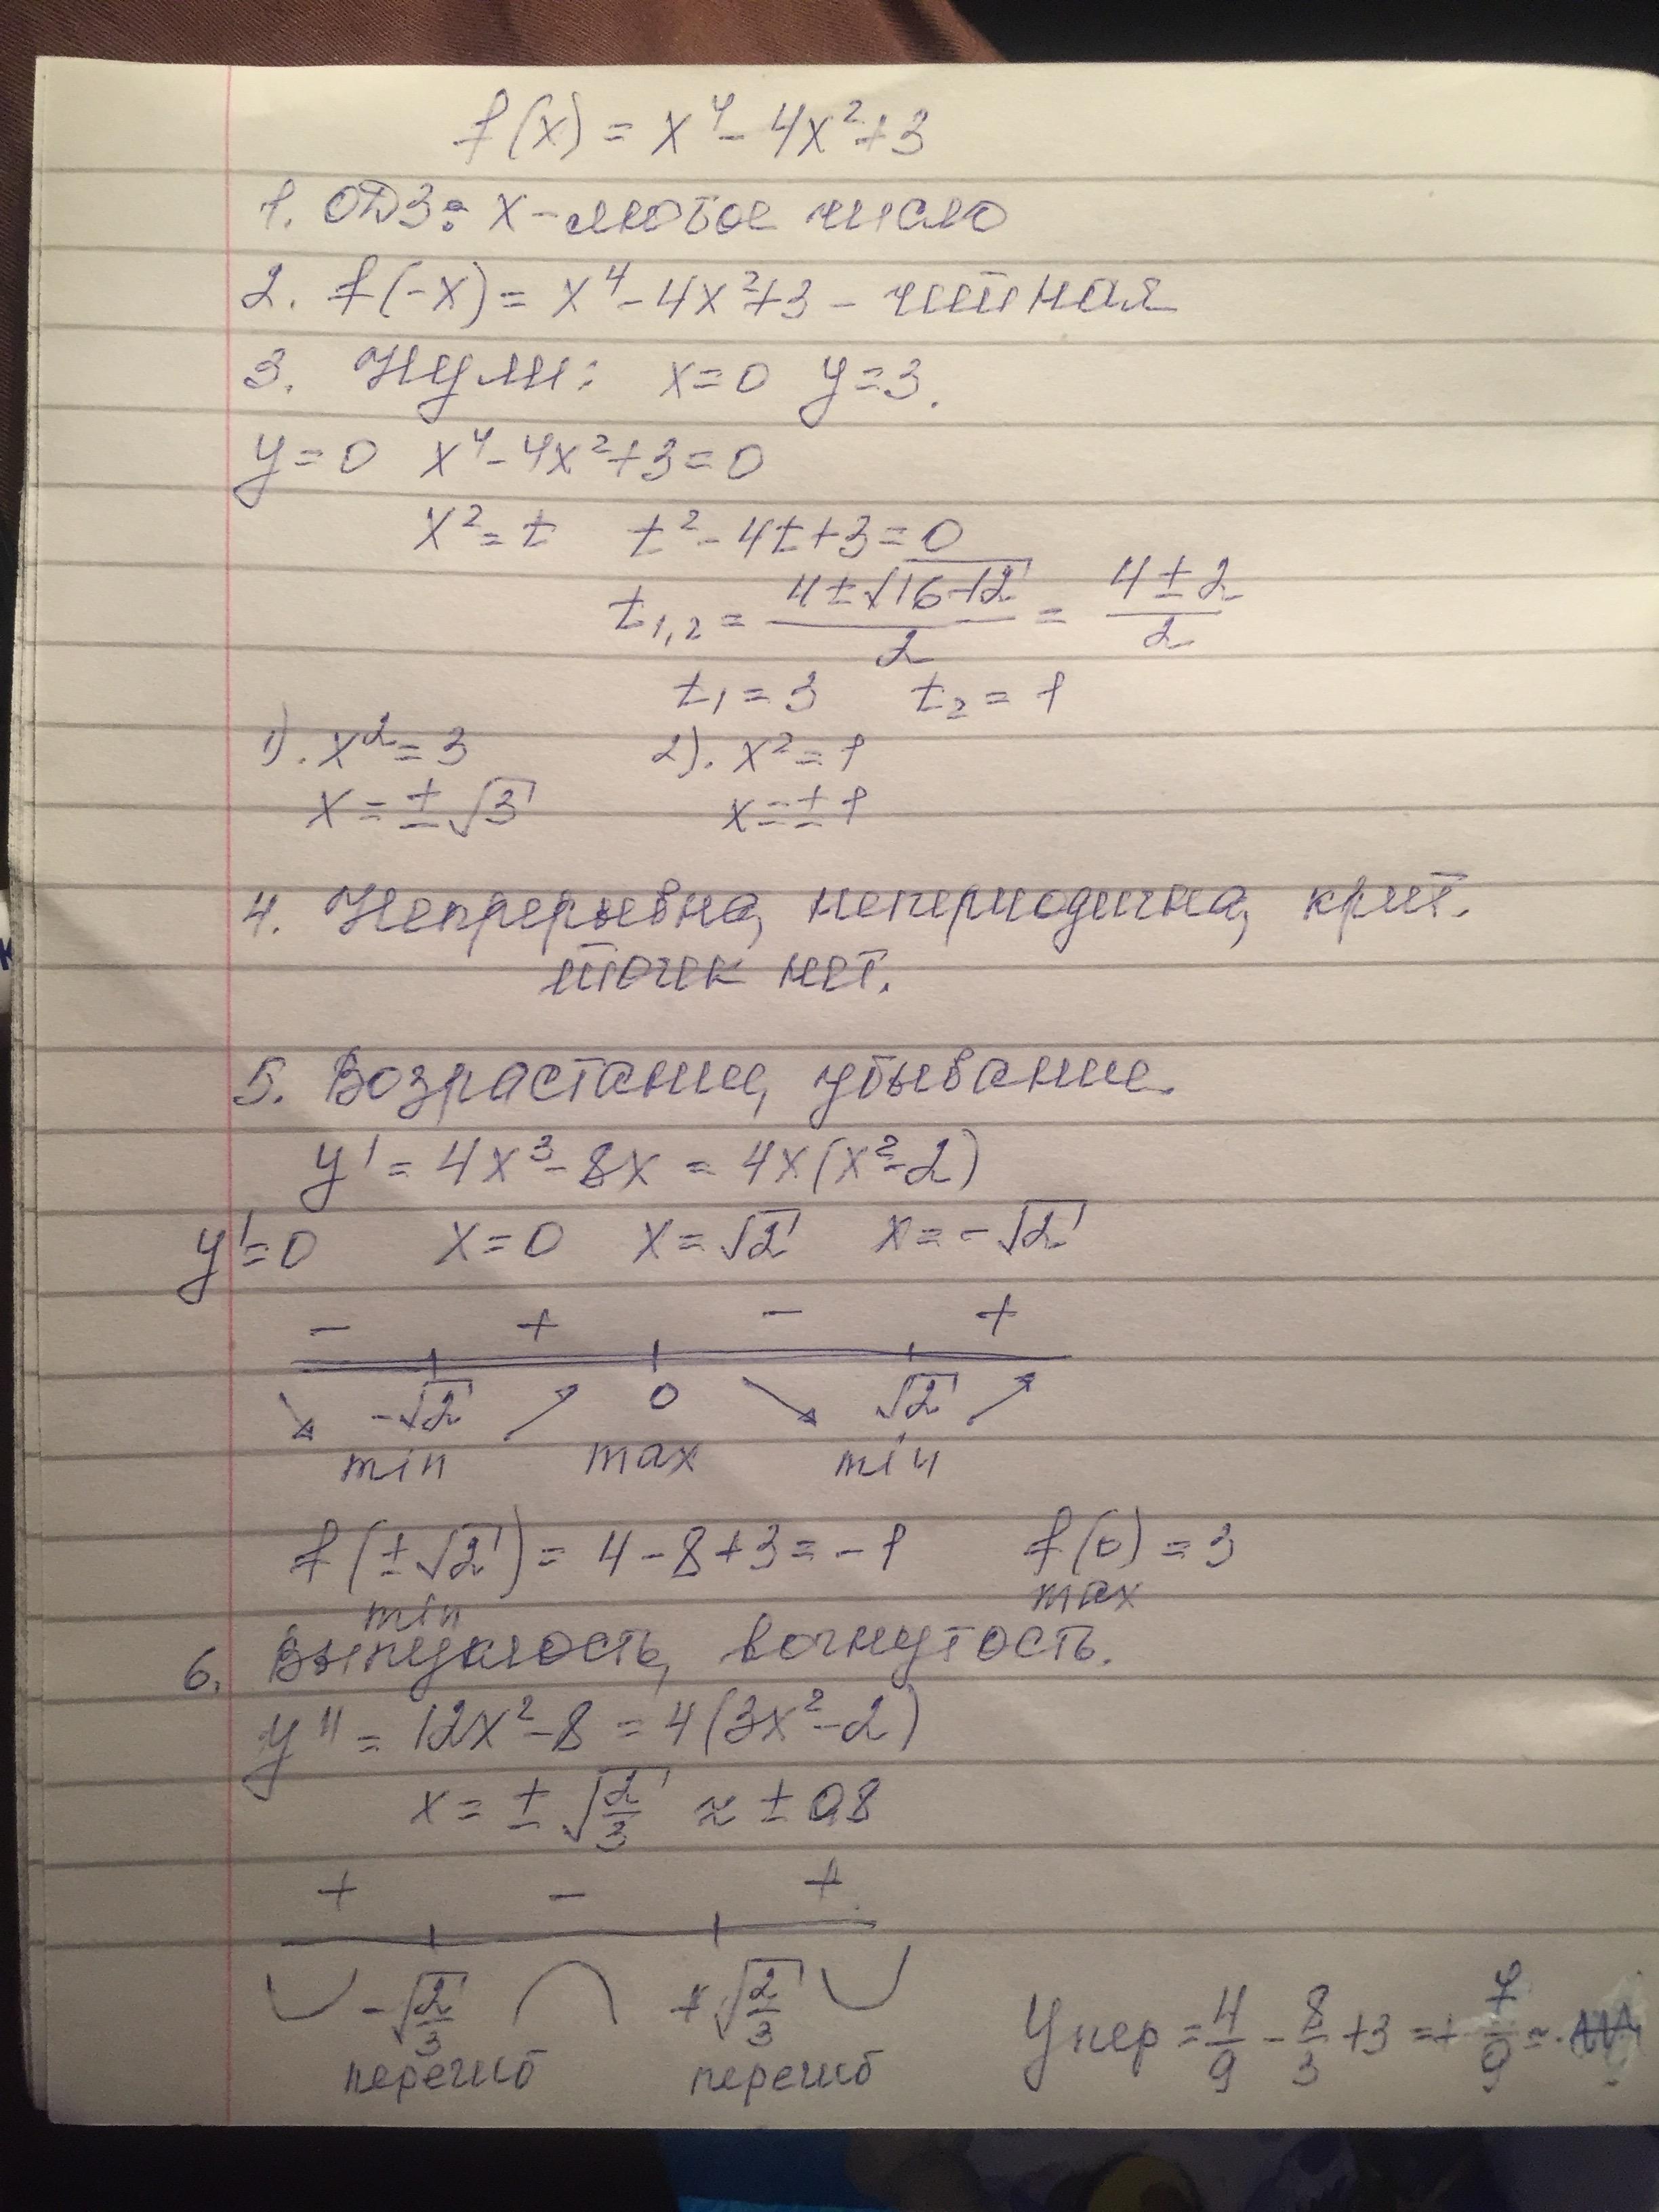 f(x) = x⁴ - 4x² + 3
1. ОДЗ: x - любое число
2. f(-x) = x⁴ - 4x² + 3 - чётная
3. Нули: x = 0 y = 3.
y = 0 x⁴ - 4x² + 3 = 0
x² = t t² - 4t + 3 = 0
t₁,₂ = (4 ± √(16 - 12))/2 = (4 ± 2)/2
t₁ = 3 t₂ = 1
1). x² = 3 2). x² = 1
x = ± √3 x = ± 1
4. Непрерывна, непериодична, крит.
точек нет.
5. Возрастание, убывание.
y' = 4x³ - 8x = 4x(x² - 2)
y' = 0 x = 0 x = √2 x = -√2
- + - +
-√2 0 √2
min max min
f(±√2) = 4 - 8 + 3 = -1 f(0) = 3
min max
6. Выпуклость, вогнутость.
y'' = 12x² - 8 = 4(3x² - 2)
x = ± √(2/3) ≈ ± 0,8
+ - +
-√(2/3) +√(2/3)
перегиб перегиб
yпер = 4/9 - 8/3 + 3 = + 7/9 ≈